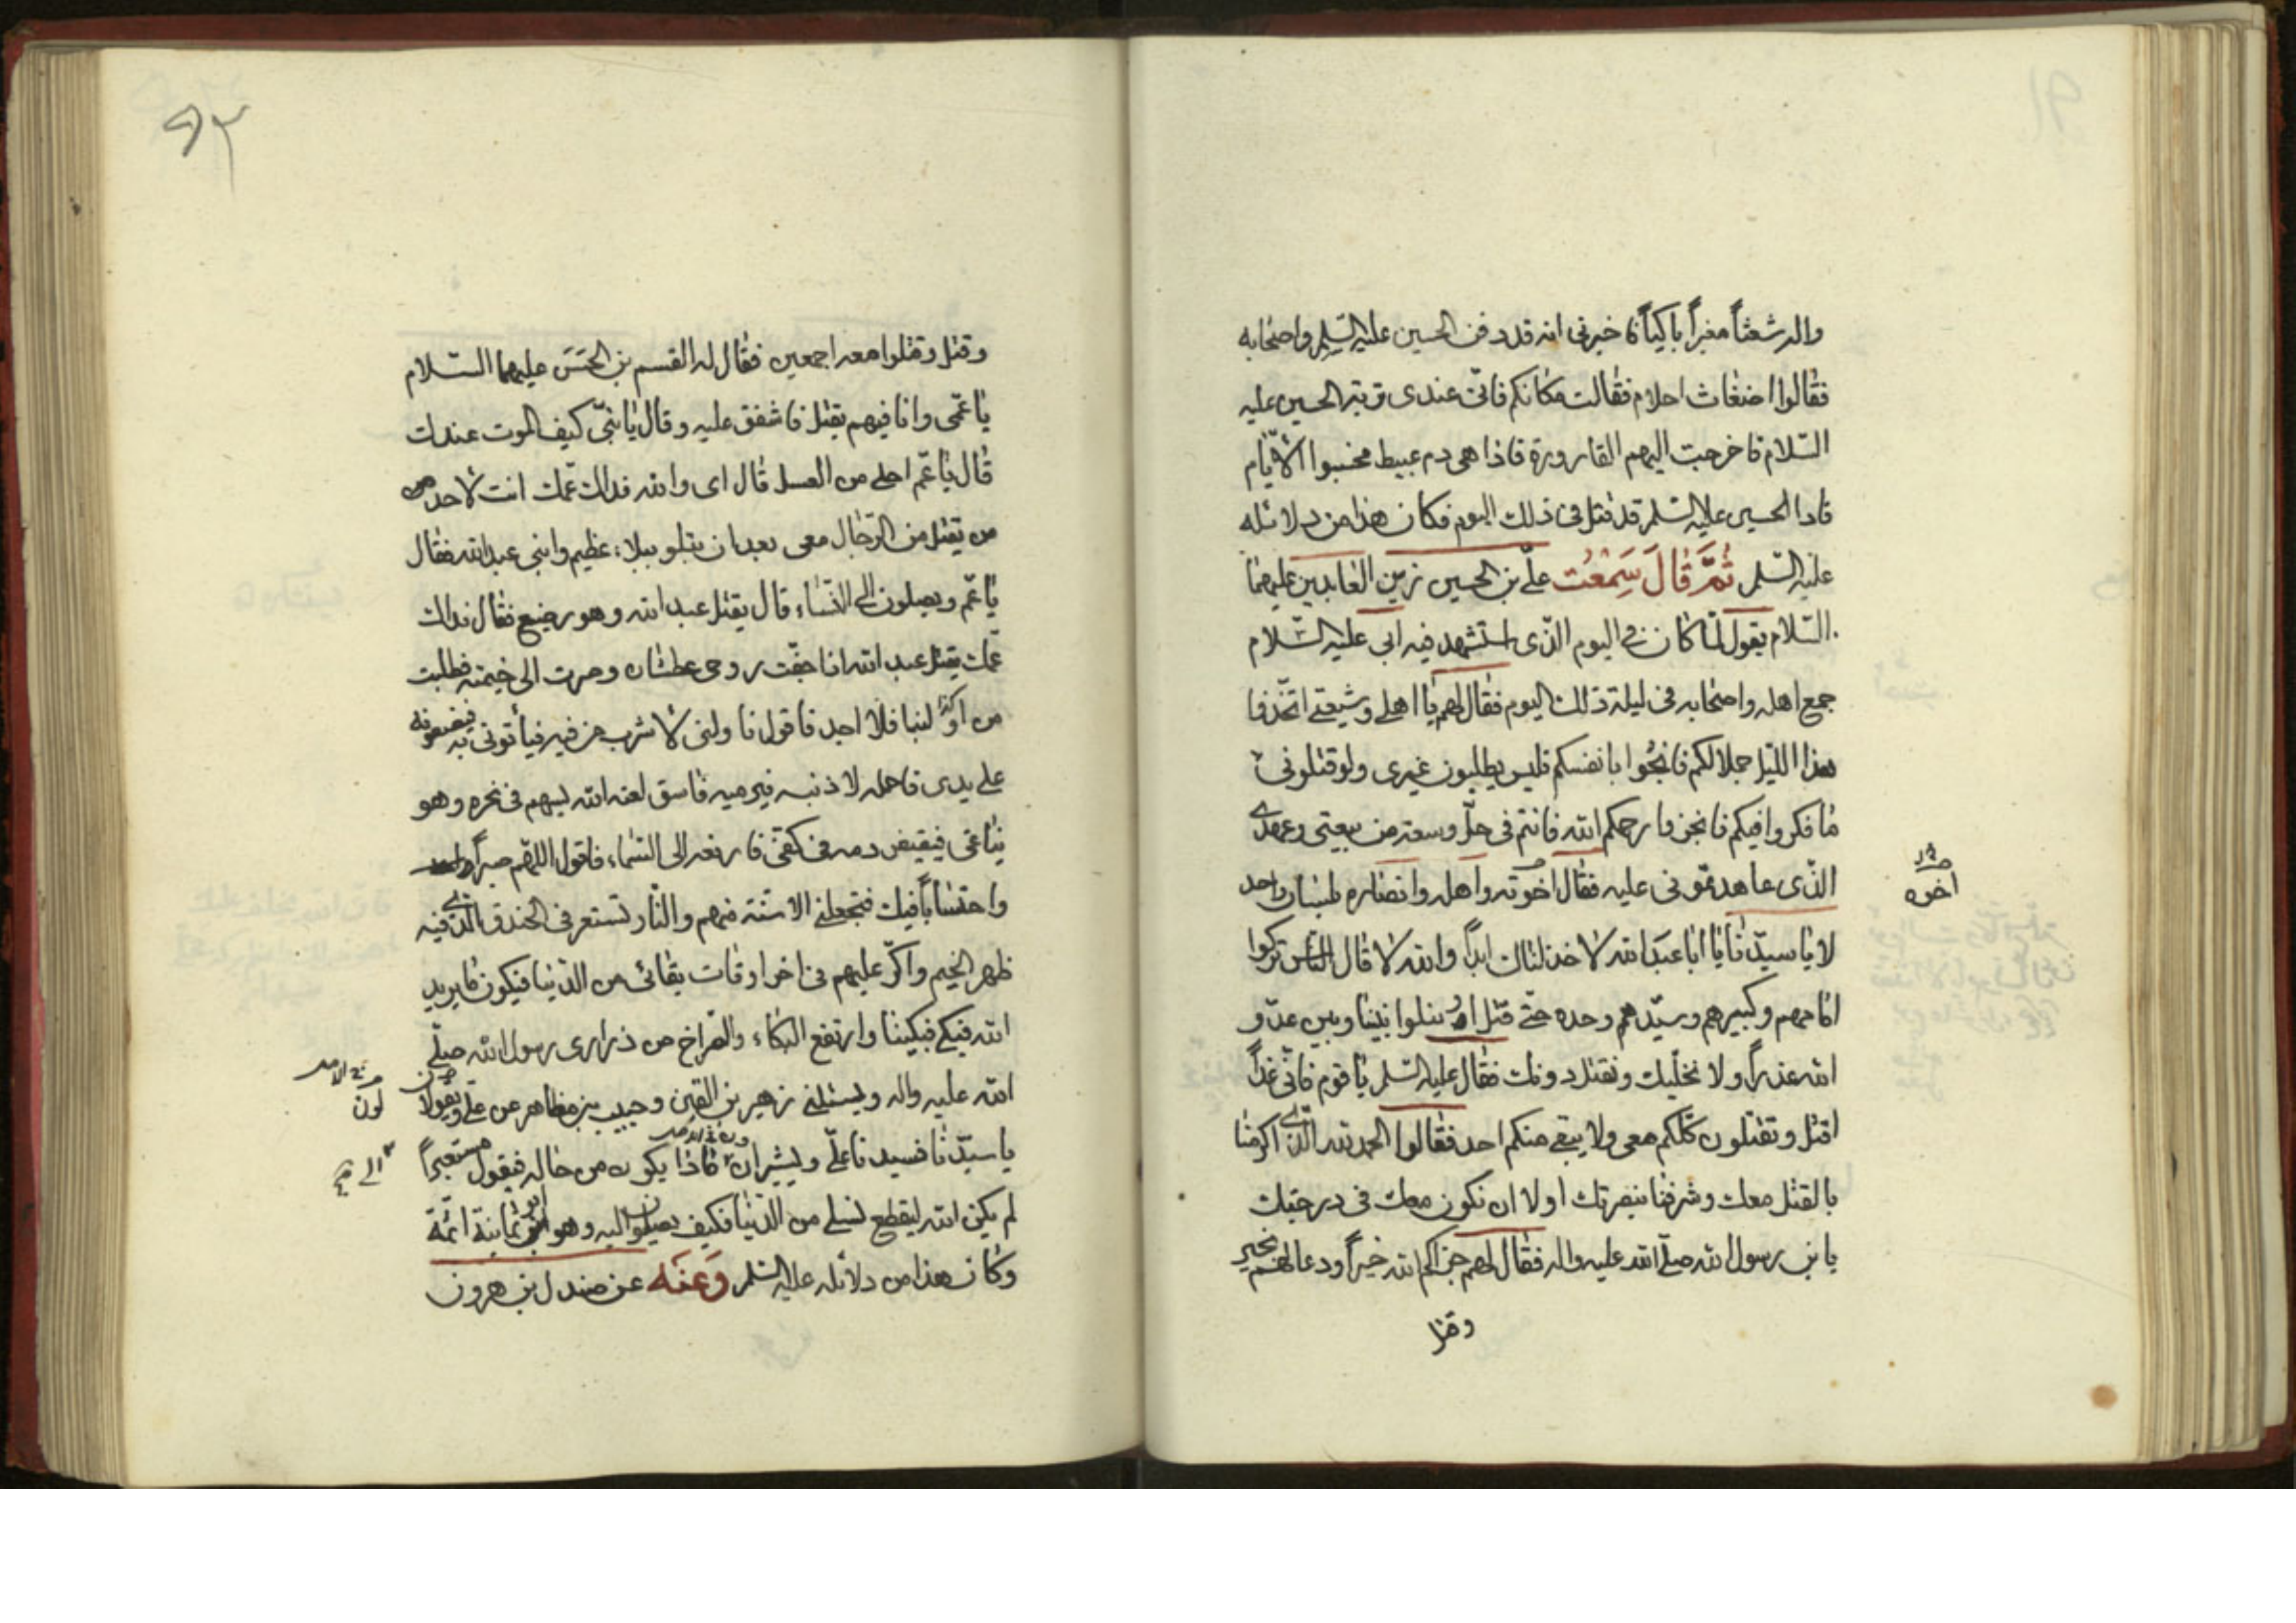 واله شعثاً مغبراً باكياً فاخبرنى انه قد دفن الحسين عليه السلم واصحابه
فقالوا اضغاث احلام فقالت مكانكم فانّ عندى تربة الحسين عليه
السّلام فاخرجت اليهم القارورة فاذا هى دم عبيط فحسبوا الايّام
فاذا الحسين عليه السّلم قد قتل فى ذلك اليوم فكان هذا من دلائله
عليه السّلم ثُمَّ قَالَ سَمِعْت علىّ بن الحسين زين العابدين عليهما
السّلام يقول لمّا كان فى اليوم الّذى استشهد فيه ابى عليه السّلام
جمع اهله واصحابه فى ليلة ذلك اليوم فقال لهم يا اهلى وشيعتى اتّخذوا
هذا اللّيل جملا لكم فانجُوا بانفسكم فليس يطلبون غيرى ولو قتلونى
ما فكروا فيكم فانجوا رحمكم الله فانتم فى حلّ وسعة من بيعتى وعهدى
الّذى عاهدتمونى عليه فقال اخوته واهله وانصاره بلسان واحد
لا يا سيّدنا يا ابا عبد الله لا خذلناك ابداً والله لا قال النّاس تركوا
امامهم وكبيرهم وسيّدهم وحده حتّى قتل او نبلوا بيننا وبين عدوّ
الله عذراً ولا نخلّيك ونقتل دونك فقال عليه السّلم يا قوم فانّى غداً
اقتل وتقتلون كلّكم معى ولا يبقى منكم احد فقالوا الحمد لله الّذى اكرمنا
بالقتل معك وشرفنا بنصرتك اولا ان نكون معك فى درجتك
يا بن رسول الله صلّى الله عليه واله فقال لهم جزاكم الله خيراً ودعا لهم بخير
وقتل
اخوه
٩٢
وقتل وقتلوا معه اجمعين فقال له القسم بن الحَسَن عليهما السّلام
يا عمّى وانا فيهم يقتل فاشفق عليه وقال يا بنىّ كيف الموت عندك
قال يا عمّ احلى من العسل قال اى والله فداك عمّك انت لاحد
من يقتل من الرّجال معى بعد ان يتلو ببلاء عظيم وابنى عبد الله فقال
يا عمّ ويصلون الى النّساء قال يقتل عبد الله وهو رضيع فقال فداك
عمّك يقتل عبد الله اذا جفّت روحى عطشان وصرت الى خيمته فطلبت
من اوّكد لبنا فلا اجد فاقول ناولنى لاشرب من فيه فيأتونى به فيضعونه
على يدى فاحمله لاذنيه فيرميه فاسق لعنه الله بسهم فى نحره وهو
يناغى فيفيض دمه فى كفّى فارفعه الى السّماء فاقول اللهمّ صبراً
واحتساباً فيك فتعجلنى الاسنّة منهم والنّار تستعر فى الخندق الّذى فيه
ظهر الخيم واكرّ عليهم فى اخر اوقات بقائى من الدّنيا فيكون ما يريد
الله فبكى فبكينا وارتفع البكاء والصّراخ من ذرارى رسول الله صلّى
الله عليه واله ويسئلنى زهير بن القين وحبيب بن مظاهر عن علىّ ويقولا
لون
يا سيّدنا فسيدنا علىّ ويشيران ماذا يكون من حاله فيقول مستعبراً
الى
لم يكن الله ليقطع نسلى من الدّنيا فكيف يصلون اليه وهو ابو ثمانية ائمّة
وكان هذا من دلائله عليه السّلم وَعَنْه عن صندل بن هرون